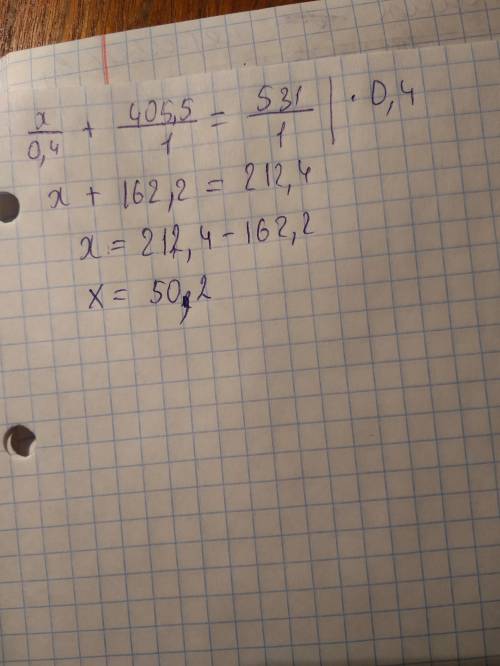 x/0,4 + 405,5/1 = 531/1 | · 0,4
x + 162,2 = 212,4
x = 212,4 - 162,2
x = 50,2